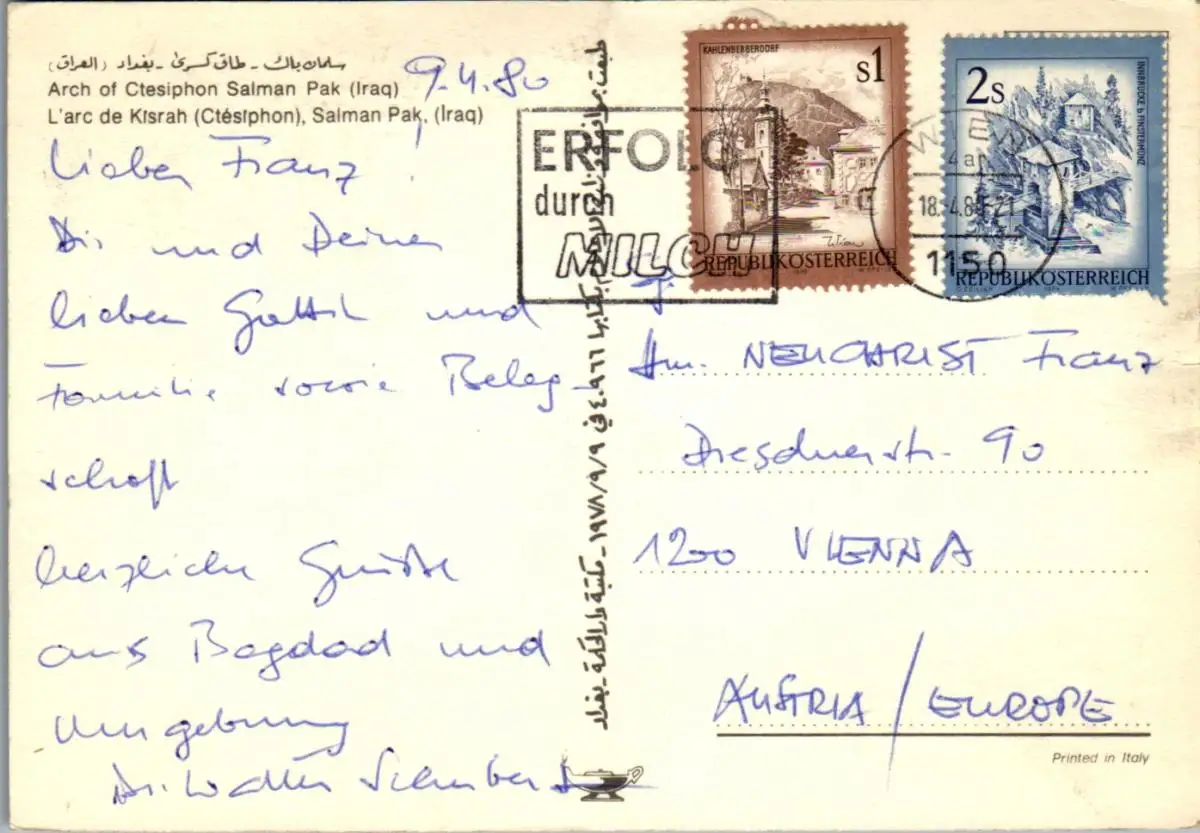 سلمان باك - طاق كسرى - بغداد (العراق)
Arch of Ctesiphon Salman Pak (Iraq)
L'arc de Kisrah (Ctésiphon), Salman Pak, (Iraq)
9.4.80
Lieber Franz!
Dir und Deiner
lieben Gattin und
Familie sowie Beleg-
schaft
herzliche Grüße
aus Bagdad und
Umgebung
Dr. Walter Schubert
ERFOLG
durch
MILCH
KAHLENBERGERDORF
s1
REPUBLIK ÖSTERREICH
2s
INNBRÜCKE b. FINSTERMÜNZ
REPUBLIK ÖSTERREICH
WIEN
18.-4.80-21
1150
Hrn. NEUCHRIST Franz
Dresdnerstr. 90
1200 VIENNA
AUSTRIA / EUROPE
Printed in Italy